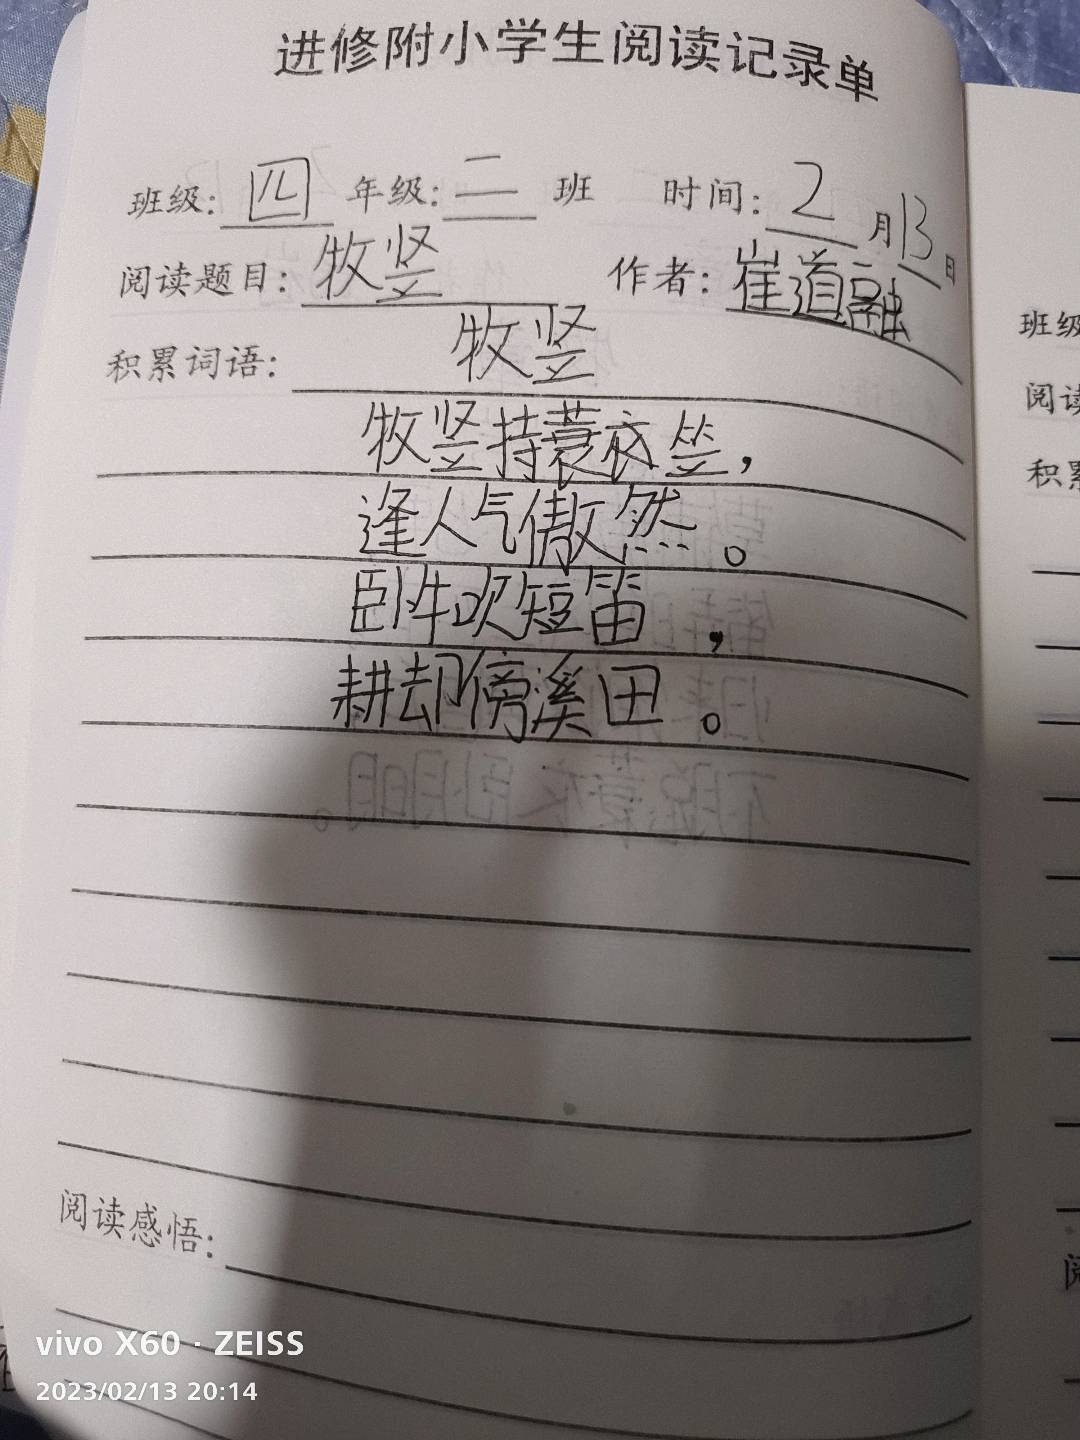 进修附小学生阅读记录单
班级：四 年级：二 班 时间：2 月 13 日
阅读题目：牧竖 作者：崔道融
积累词语：牧竖
牧竖持蓑衣笠，
逢人气傲然。
卧牛吹短笛，
耕却傍溪田。
阅读感悟：
班级
阅读
积累
阅
vivo X60 · ZEISS
2023/02/13 20:14